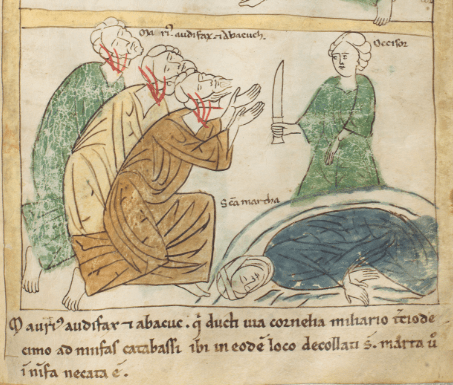 Mauri⁹ audifax ⁊ abacuch.
Occisor
Sc̄a martha
Mauri⁹ audifax ⁊ abacuc. q̇ ducti uia cornelia miliario t̾ciode
cimo ad nīfas catabassi ibi in eodē loco decollati s̄. marta ū
i nīfa necata ē.